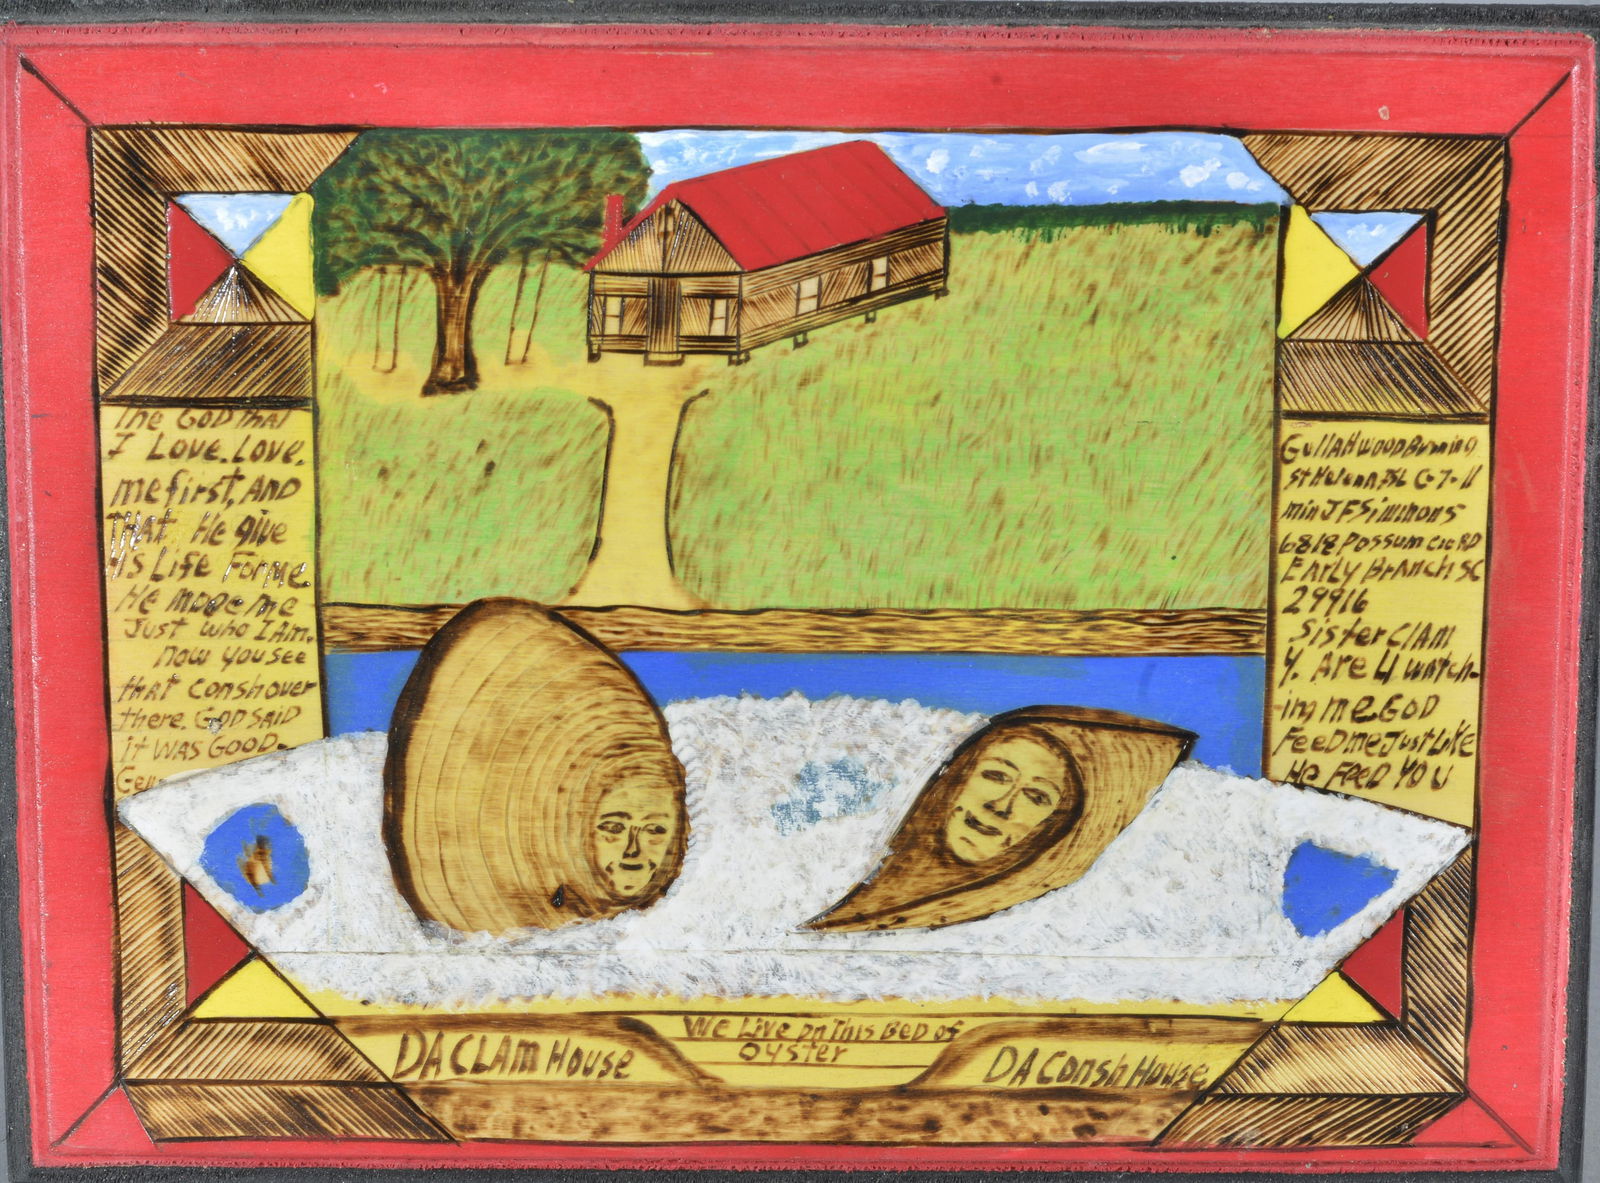 The GOD THAT
I Love. Love.
me first, AND
THAT He give
His Life For me
He made me
Just who I Am.
now you see
that consh over
there. GOD SAID
it WAS GOOD.
GullAH wood Burning
St Helena Isl 6-7-11
min J F Simmons
Possum RD
EArly Branch SC
29916
Sister CLAm
Y. Are U watch-
ing me. GOD
FeeD me Just Like
He FeeD YOU
DA CLAm House
We Live on This BeD of
Oyster
DA Consh House